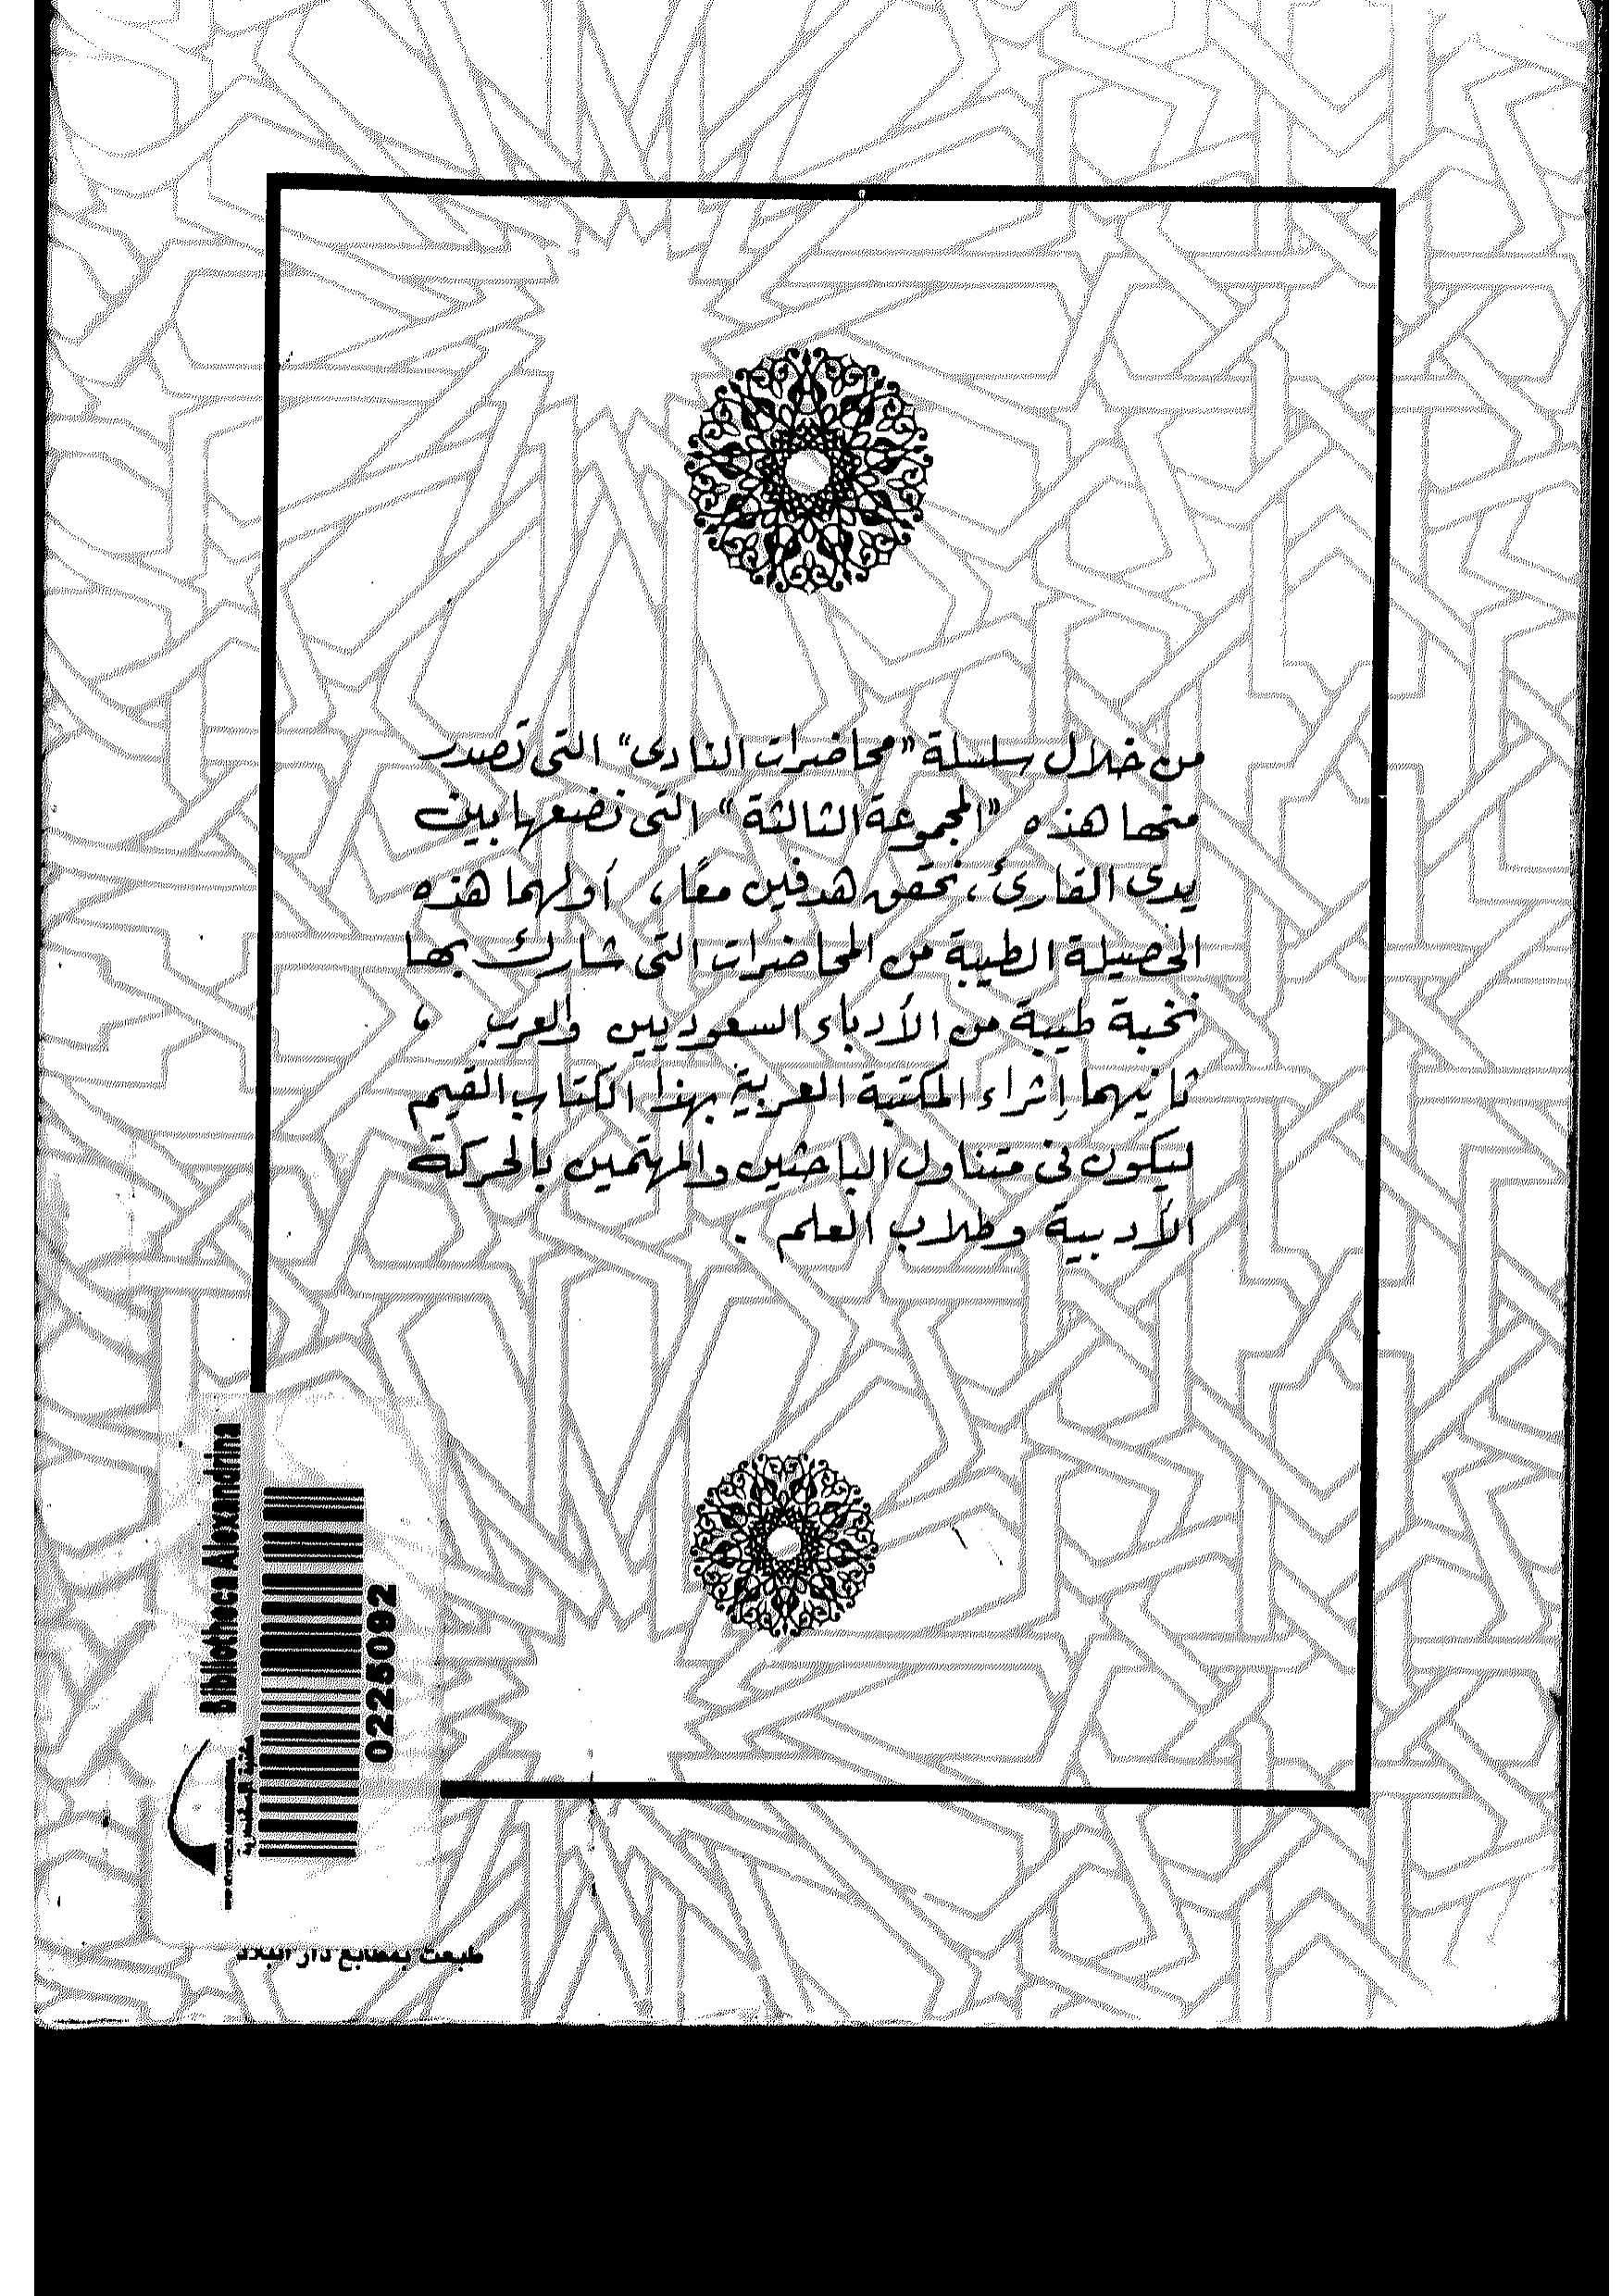 من خلال سلسلة "محاضرات النادى" التى تصدر
منها هذه "المجموعة الثالثة" التى نضعها بين
يدى القارئ، نحقق هدفين معًا، أولهما هذه
الحصيلة الطيبة من المحاضرات التى شارك بها
نخبة طيبة من الأدباء السعوديين والعرب ،
ثانيهما إثراء المكتبة العربية بهذا الكتاب القيم
ليكون فى متناول الباحثين والمهتمين بالحركة
الأدبية وطلاب العلم .
Bibliotheca Alexandrina
0225092
طبعت بمطابع دار البلاد